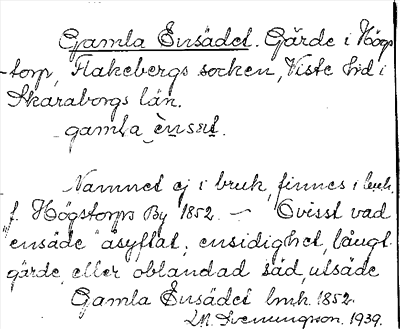 Gamla Ensädet. Gärde i Högs-
torp, Flakebergs socken, Viste hd i
Skaraborgs län.
gamla enset.
Namnet ej i bruk, finnes i lmh.
f. Högstorps By 1852. — Ovisst vad
"ensäde" åsyftat, ensidighet, långt
gärde, eller oblandad säd, utsäde
Gamla Ensädet lmh. 1852.
Svenungson. 1939.